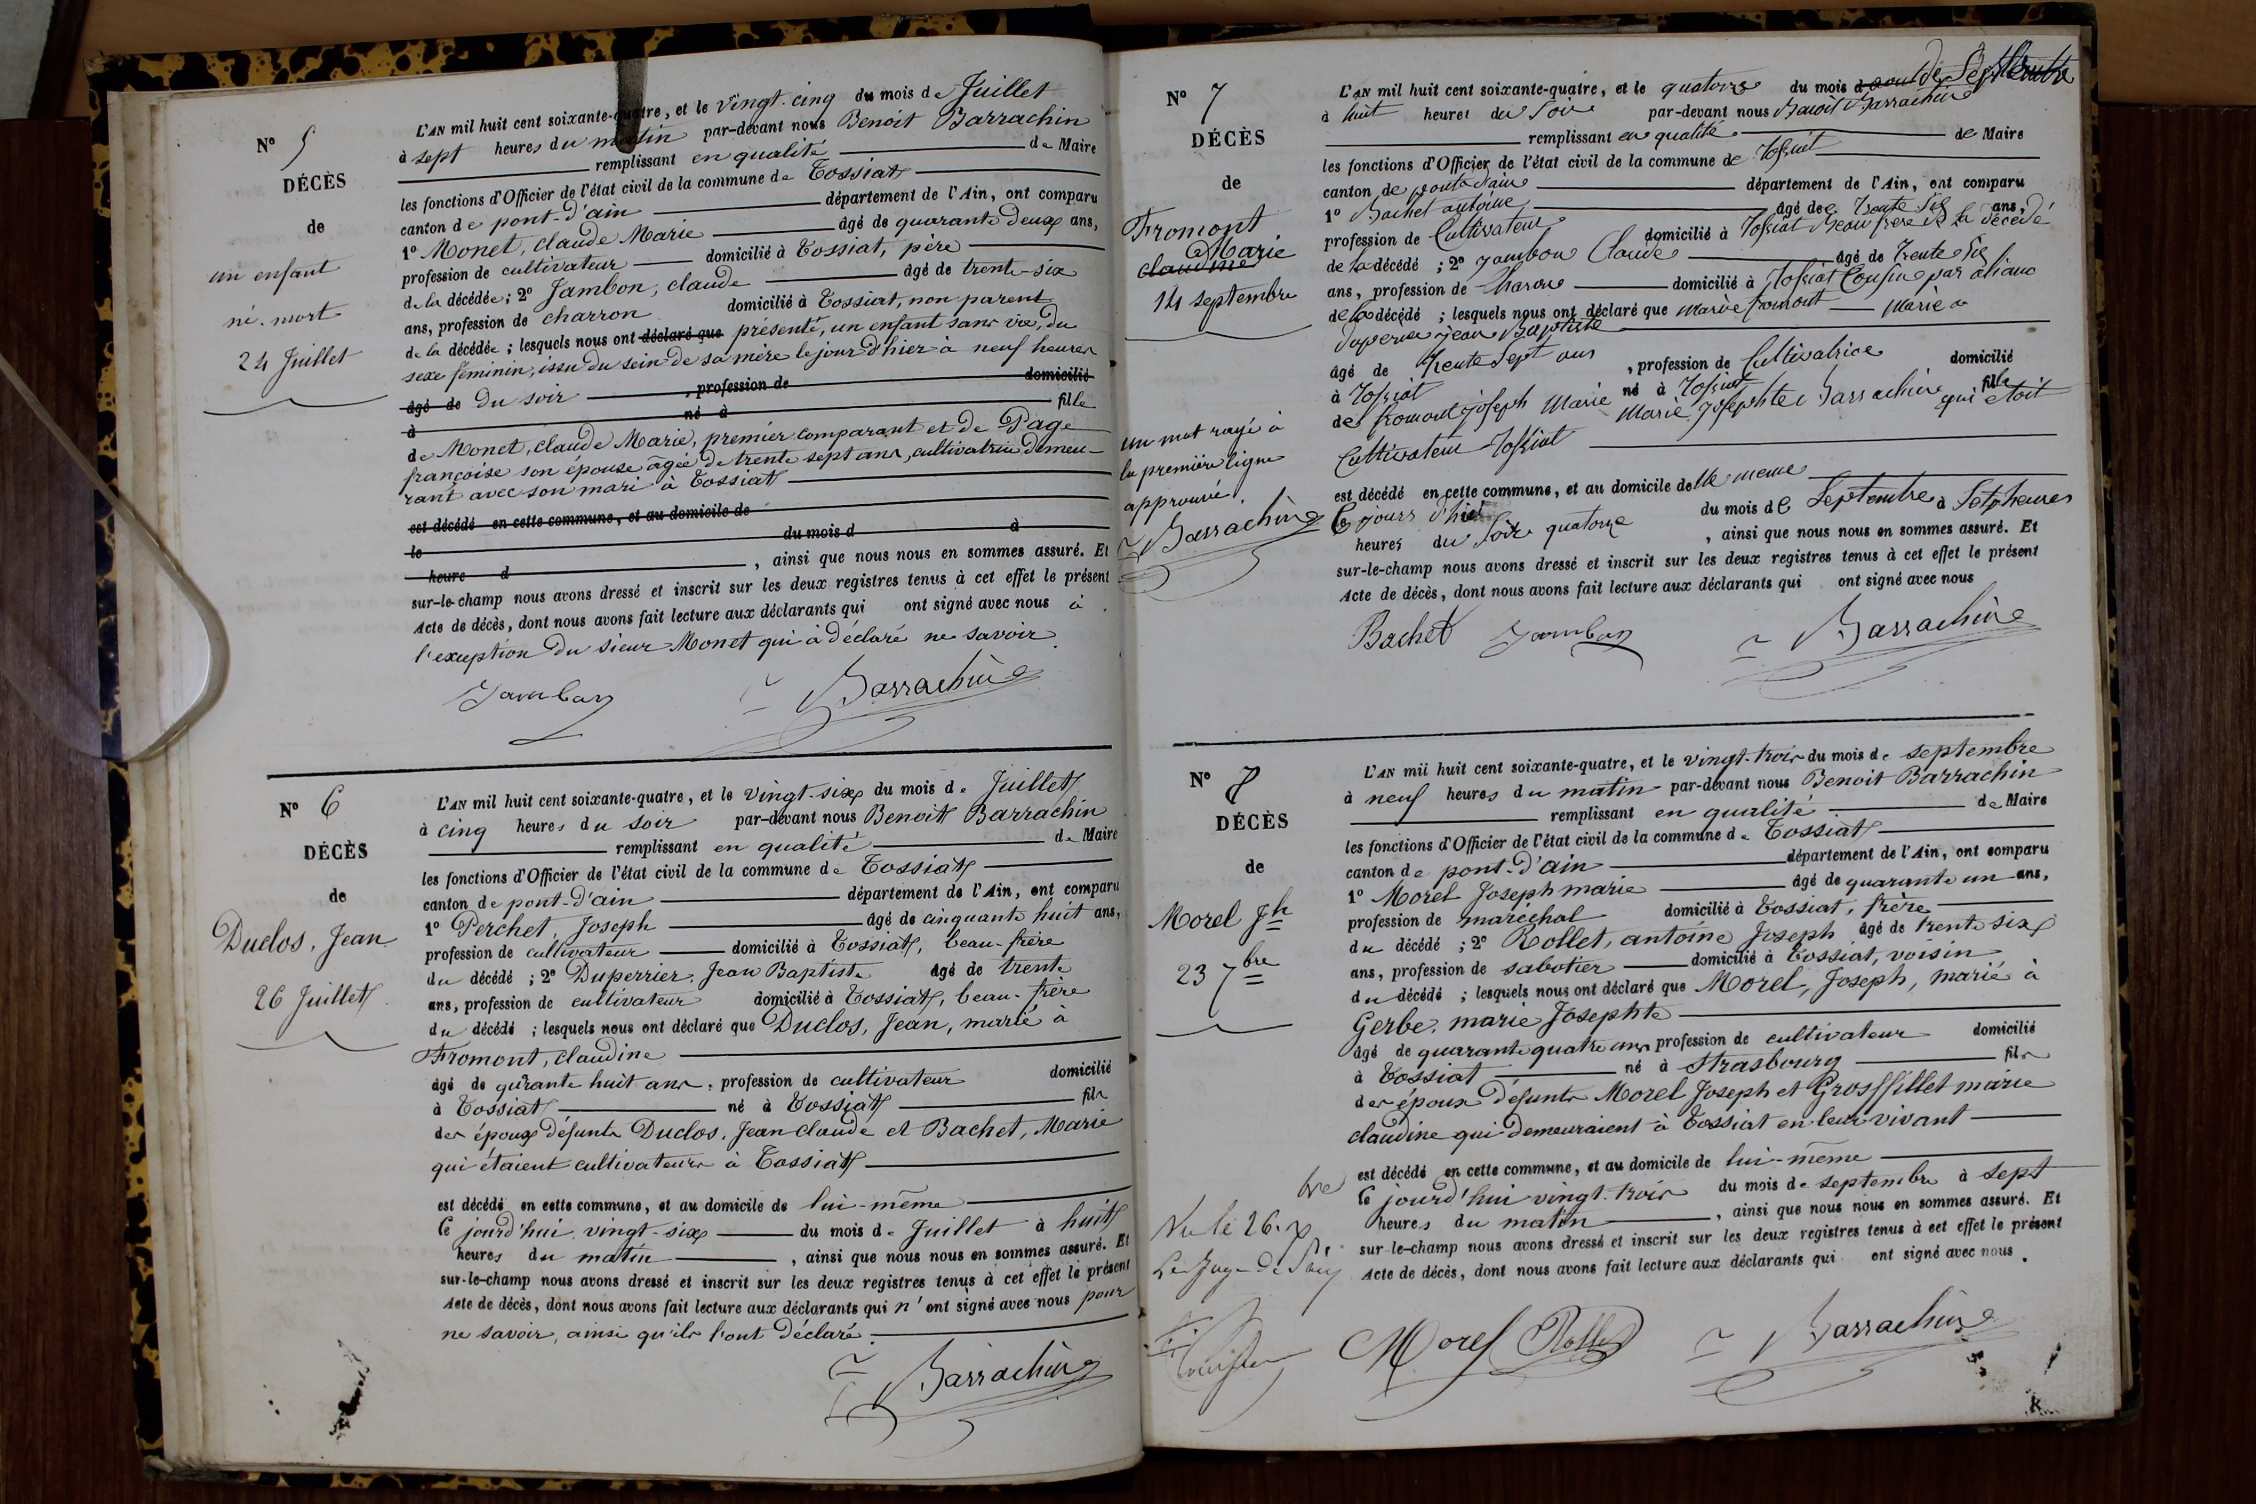 N° 5
DÉCÈS
de
un enfant
né-mort
24 Juillet
L'AN mil huit cent soixante-quatre, et le vingt-cinq du mois de Juillet
à sept heures du matin par-devant nous Benoit Barrachin
remplissant en qualité de Maire
les fonctions d'Officier de l'état civil de la commune de Tossiat
canton de pont-d'ain département de l'Ain, ont comparu
1° Monet, claude Marie âgé de quarante deux ans,
profession de cultivateur domicilié à Tossiat, père
de la décédée; 2° Jambon, claude âgé de trente-six
ans, profession de charron domicilié à Tossiat, non parent
de la décédée; lesquels nous ont déclaré que présenté, un enfant sans vie, du
sexe féminin, issu du sein de sa mère le jour d'hier à neuf heures
âgé de du soir , profession de domicilié
à né à fille
de Monet, claude Marie, premier comparant et de Page
françoise son épouse âgée de trente sept ans, cultivatrice demeu-
rant avec son mari à Tossiat
est décédé en cette commune, et au domicile de
le du mois d à
heure d , ainsi que nous nous en sommes assuré. Et
sur-le-champ nous avons dressé et inscrit sur les deux registres tenus à cet effet le présent
Acte de décès, dont nous avons fait lecture aux déclarants qui ont signé avec nous à
l'exception du sieur Monet qui à déclaré ne savoir
Jambon Barrachin
N° 6
DÉCÈS
de
Duclos, Jean
26 Juillet
L'AN mil huit cent soixante-quatre, et le vingt-six du mois de Juillet
à cinq heures du soir par-devant nous Benoit Barrachin
remplissant en qualité de Maire
les fonctions d'Officier de l'état civil de la commune de Tossiat
canton de pont-d'ain département de l'Ain, ont comparu
1° Perchet, Joseph âgé de cinquante huit ans,
profession de cultivateur domicilié à Tossiat, beau-frère
du décédé ; 2° Duperrier, Jean Baptiste âgé de trente
ans, profession de cultivateur domicilié à Tossiat, beau-frère
du décédé ; lesquels nous ont déclaré que Duclos, Jean, marié à
Fromont, claudine
âgé de qu'rante huit ans, profession de cultivateur domicilié
à Tossiat né à Tossiat fils
des époux défunts Duclos, Jean claude et Bachet, Marie
qui étaient cultivateurs à Tossiat
est décédé en cette commune, et au domicile de lui-même
le jourd'hui vingt-six du mois de Juillet à huit
heures du matin , ainsi que nous nous en sommes assuré. Et
sur-le-champ nous avons dressé et inscrit sur les deux registres tenus à cet effet le présent
Acte de décès, dont nous avons fait lecture aux déclarants qui n'ont signé avec nous pour
ne savoir, ainsi qu'ils l'ont déclaré.
Barrachin
N° 7
DÉCÈS
de
Fromont
Marie
claudine
14 septembre
un mot rayé à
la première ligne
approuvé.
Barrachin
L'AN mil huit cent soixante-quatre, et le quatorze du mois d aout de Septembre
à huit heures du Soir par-devant nous Benoit Barrachin
remplissant en qualité de Maire
les fonctions d'Officier de l'état civil de la commune de Tossiat
canton de pont d'ain département de l'Ain, ont comparu
1° Bachet antoine âgé de trente six ans,
profession de Cultivateur domicilié à Tossiat Beau frere de la décédé
de la décédé ; 2° Jambon Claude âgé de trente six
ans, profession de Charon domicilié à Tossiat Cousin par aliance
de la décédé ; lesquels nous ont déclaré que Marie fromont Marié a
Duperier jean Baptiste
âgé de trente Sept ans , profession de Cultivatrice domicilié
à Tossiat né à Tossiat fille
de fromont joseph Marie Marie josephte Barrachin qui etoit
Cultivateur Tossiat
est décédé en cette commune, et au domicile de elle meme
le jours d'hui du mois de Septembre à Sept heures
heures du Soir quatorze , ainsi que nous nous en sommes assuré. Et
sur-le-champ nous avons dressé et inscrit sur les deux registres tenus à cet effet le présent
Acte de décès, dont nous avons fait lecture aux déclarants qui ont signé avec nous
Bachet Jambon Barrachin
N° 8
DÉCÈS
de
Morel Jh
23 7bre
Vu le 26 7bre
Le Juge de Paix
L'AN mil huit cent soixante-quatre, et le vingt-trois du mois de septembre
à neuf heures du matin par-devant nous Benoit Barrachin
remplissant en qualité de Maire
les fonctions d'Officier de l'état civil de la commune de Tossiat
canton de pont-d'ain département de l'Ain, ont comparu
1° Morel Joseph marie âgé de quarante un ans,
profession de maréchal domicilié à Tossiat, frère
du décédé ; 2° Rollet, antoine Joseph âgé de trente six
ans, profession de sabotier domicilié à Tossiat, voisin
du décédé ; lesquels nous ont déclaré que Morel, Joseph, marié à
Gerbe, marie Josephte
âgé de quarante quatre ans profession de cultivateur domicilié
à Tossiat né à Strasbourg fils
des époux défunts Morel Joseph et Grosffillet marie
claudine qui demeuraient à Tossiat en leur vivant
est décédé en cette commune, et au domicile de lui-même
le jourd'hui vingt-trois du mois de septembre à sept
heures du matin , ainsi que nous nous en sommes assuré. Et
sur-le-champ nous avons dressé et inscrit sur les deux registres tenus à cet effet le présent
Acte de décès, dont nous avons fait lecture aux déclarants qui ont signé avec nous.
Morel Rollet Barrachin